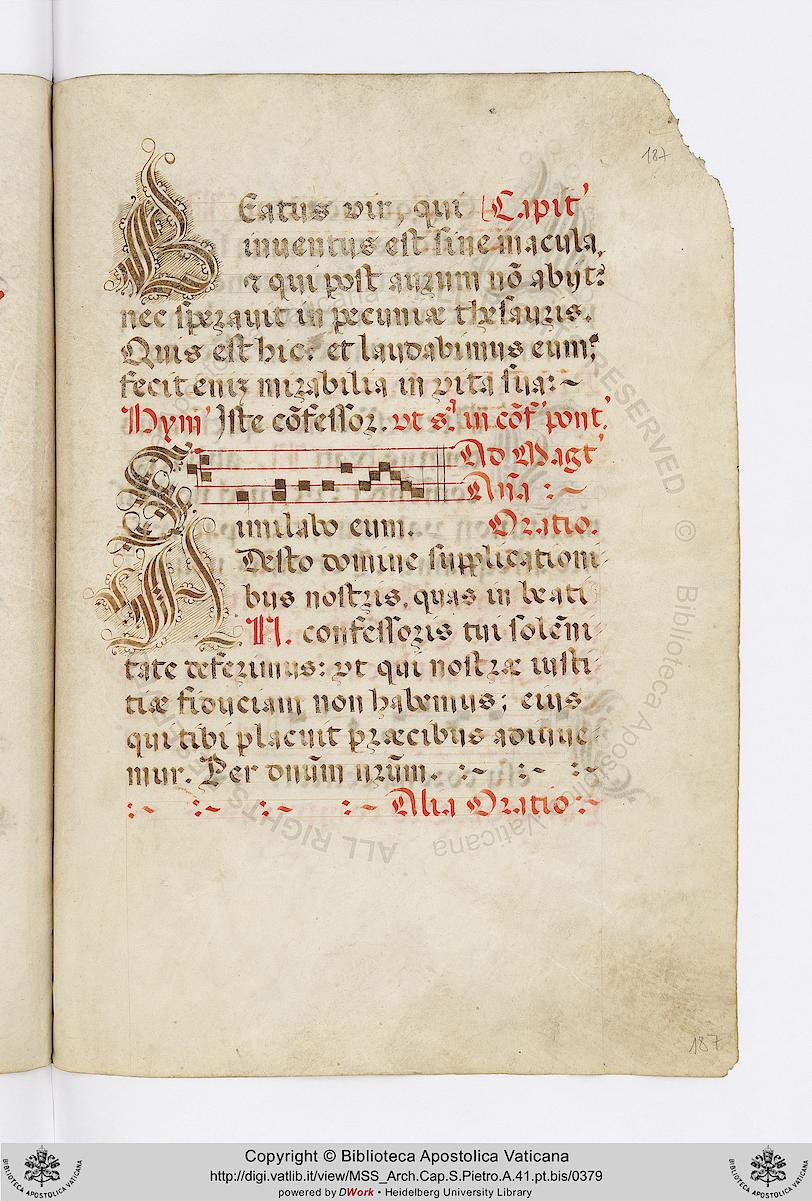 187
Beatus vir, qui Capit'
inventus est sine macula,
& qui post aurum nõ abijt:
nec speravit in pecuniæ thesauris.
Quis est hic? et laudabimus eum;
fecit enĩ mirabilia in vita sua:~
Hym' Iste cõfessor. ut s.' in cõf' pont.'
Ad Magt'
Aña :~
Similabo eum. Oratio.
Adesto domine supplicationi
bus nostris, quas in beati
N. confessoris tui solẽni
tate deferimus: ut qui nostræ iusti
tiæ fiduciam non habemus; eius
qui tibi placuit præcibus adiuve
mur. Per dnũm nrũm. :~ :~ :~
:~ :~ :~ :~ Alia Oratio:~
187
ALL RIGHTS RESERVED © Biblioteca Apostolica Vaticana
Copyright © Biblioteca Apostolica Vaticana
http://digi.vatlib.it/view/MSS_Arch.Cap.S.Pietro.A.41.pt.bis/0379
powered by DWork • Heidelberg University Library
BIBLIOTECA APOSTOLICA VATICANA
BIBLIOTECA APOSTOLICA VATICANA